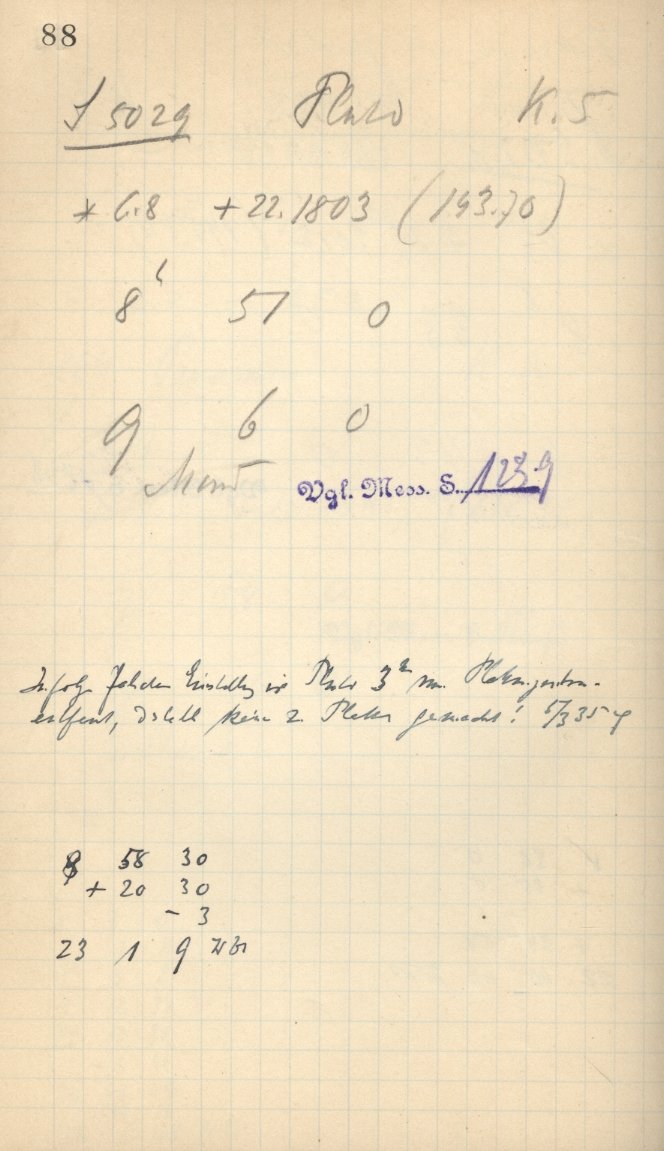 88
S 5029 Pluto K. 5
* 6.8 + 22.1803 (143.70)
8ʰ 51 0
9 6 0
Mond Vgl. Mess. S. 1239
Infolge falscher Einstellung ist Pluto 3 vom Plattenzentrum
entfernt, deshalb keine 2. Platte gemacht! 5/3 35
8 58 30
+ 20 30
- 3
23 1 9